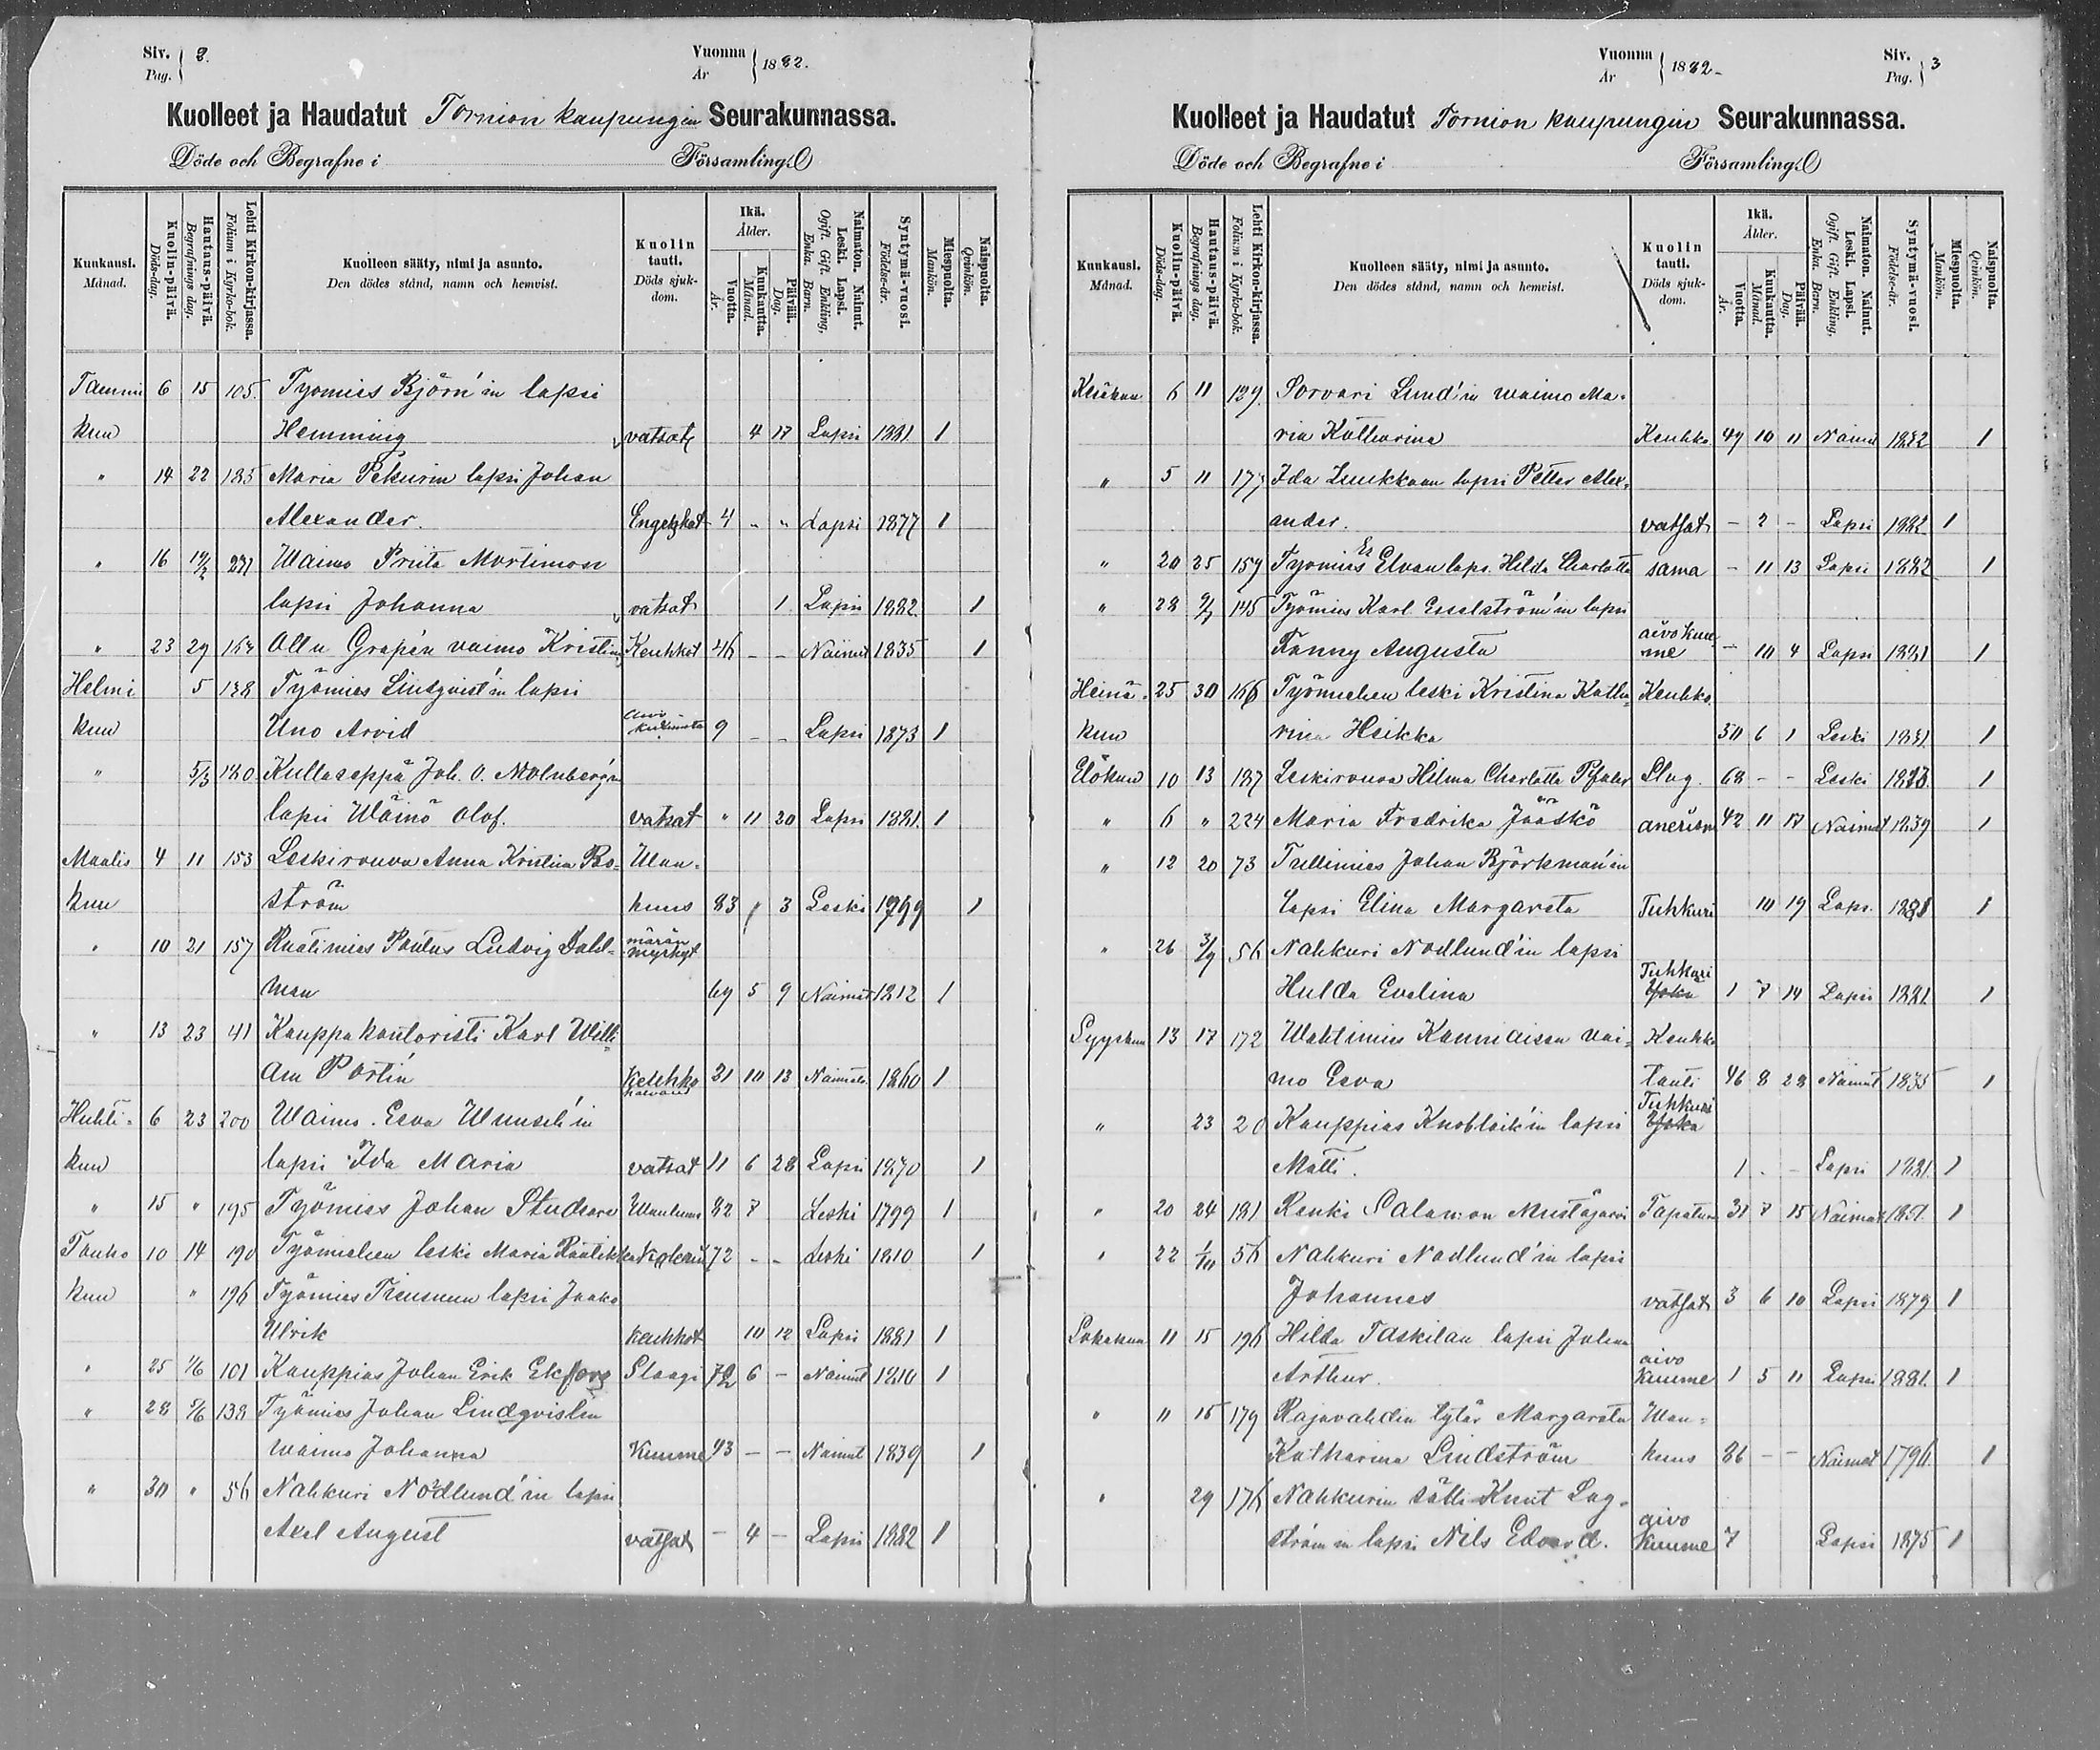 Siv. Pag. 2.
Vuonna År 1882.
Kuolleet ja Haudatut Tornion kaupungin Seurakunnassa.
Döde och Begrafne i Församling.
Kuukausi. Månad.
Kuolin-päivä. Döds-dag.
Hautaus-päivä. Begrafnings dag.
Lehti Kirkon-kirjassa. Folium i Kyrko-bok.
Kuolleen sääty, nimi ja asunto. Den dödes stånd, namn och hemvist.
Kuolin tauti. Döds sjukdom.
Ikä. Ålder.
Vuotta. År.
Kuukautta. Månad.
Päivää. Dag.
Naimaton. Nainut. Leski. Lapsi. Ogift. Gift. Enkling, Enka. Barn.
Syntymä-vuosi. Födelse-år.
Miespuolta. Mankön.
Naispuolta. Qvinkön.
Tammi 6 15 105. Työmies Björn'in lapsi
kuu Hemming vatsat 4 17 Lapsi 1881. 1
" 14 22 185 Maria Pekurin lapsi Johan
Alexander. 4 " " Lapsi 1877 1
" 16 Waimo Priita Martimon
lapsi Johanna vatsat 1 Lapsi 1882. 1
" 23 29 Grapén vaimo Kristina Keuhkot 46 - - Nainut 1835 1
Helmi 5 138 Työmies Lindqvist'in lapsi
kuu Uno Arvid 9 - - Lapsi 1873 1
" 5/3 180 Kultaseppä Joh. O. Molnberg'in
lapsi Wäinö Olof. vatsat " 11 20 Lapsi 1881. 1
Maalis 4 11 153 Leskirouva Anna Kristina Bo= Wan-
kuu ström huus 83 3 Leski 1799 1
" 10 21 157 Raatimies Paulus Ludvig Dahl=
man 69 5 9 Nainut 1812 1
" 13 23 41 Kauppakontoristi Karl Willi=
am Portin Keuhko 21 10 13 Naimat. 1860 1
Huhti= 6 23 200 Waimo Eeva Wunsch'in
kuu lapsi Ida Maria vatsat 11 6 28 Lapsi 1870 1
" 15 " 195 Työmies Johan Studsare Wanhuus 82 7 Leski 1799 1
Touko 10 14 190 Työmiehen leski Maria 72 - - Leski 1810 1
kuu " 196 Työmies lapsi Jaako
Ulrik Keuhkot 10 12 Lapsi 1881 1
" 25 1/6 101 Kauppias Johan Erik Ekforg Slaagi 72 6 - Nainut 1810 1
" 28 5/6 138 Työmies Johan Lindqvistin
waimo Johanna Kuume 43 - - Nainut 1839 1
" 30 " 56 Nahkuri Nodlund'in lapsi
Axel August vatsat - 4 - Lapsi 1882 1
Vuonna År 1882.
Siv. Pag. 3
Kuolleet ja Haudatut Tornion kaupungin Seurakunnassa.
Döde och Begrafne i Församling.
Kuukausi. Månad.
Kuolin-päivä. Döds-dag.
Hautaus-päivä. Begrafnings dag.
Lehti Kirkon-kirjassa. Folium i Kyrko-bok.
Kuolleen sääty, nimi ja asunto. Den dödes stånd, namn och hemvist.
Kuolin tauti. Döds sjukdom.
Ikä. Ålder.
Vuotta. År.
Kuukautta. Månad.
Päivää. Dag.
Naimaton. Nainut. Leski. Lapsi. Ogift. Gift. Enkling, Enka. Barn.
Syntymä-vuosi. Födelse-år.
Miespuolta. Mankön.
Naispuolta. Qvinkön.
Kesäkuu 6 11 129. Sorvari Lund'in waimo Ma=
ria Katharina Keuhko 49 10 11 Nainut 1832 1
" 5 11 177 Ida lapsi Petter Alex=
ander. vatsat - 2 - Lapsi 1882 1
" 20 25 159 Työmies Elvan laps. Hilda Charlotta sama - 11 13 Lapsi 1882 1
" 28 9/7 145 Työmies Karl Esselström'in lapsi
Fanny Augusta aivokuu=me - 10 4 Lapsi 1881 1
Heinä- 25 30 166 Työmiehen leski Kristina Katha= Keuhko.
kuu rina Heikka 50 6 1 Leski 1831. 1
Elokuu 10 13 187 Leskirouva Hilma Charlotta Slag. 68 - - Leski 1
" 6 " 224 Maria Fredrika Jääskö 42 11 17 Naimat 1839 1
" 12 20 73 Tullimies Johan Björkman'in
lapsi Elina Margareta Tuhkuri 10 19 Laps. 1881 1
" 26 3/9 56 Nahkuri Nodlund'in lapsi
Hulda Evelina Tuhkuri 1 7 14 Lapsi 1881. 1
Syyskuu 13 17 172 Wahtimies Kanniaisen vai= Keuhko
mo Eeva tauti 46 8 28 Nainut 1835 1
" 23 20 Kauppias Knoblock'in lapsi Tuhkuri
Matti. 1 - - Lapsi 1881. 1
" 20 24 181 Renki Salamon Mustajärvi Tapaturm 31 7 15 Naimat 1851. 1
" 22 1/10 56 Nahkuri Nodlund'in lapsi
Johannes vatsat 3 6 10 Lapsi 1879 1
Lokakuu 11 15 196 Hilda Taskilan lapsi Johan
Arthur. aivo kuume 1 5 11 Lapsi 1881. 1
" 11 15 179 Rajavahdin tytär Margareta Wan=
Katharina Lindström huus 86 - - Naimat 1796. 1
" 29 176 Nahkurin sälli Knut Lag=
ström'in lapsi Nils Edvard. aivo kuume 7 Lapsi 1875 1